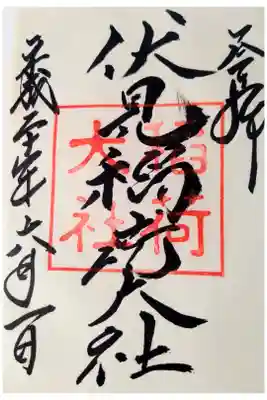 奉拝
伏見稲荷大社
稲荷
大社
平成二十年六月一日